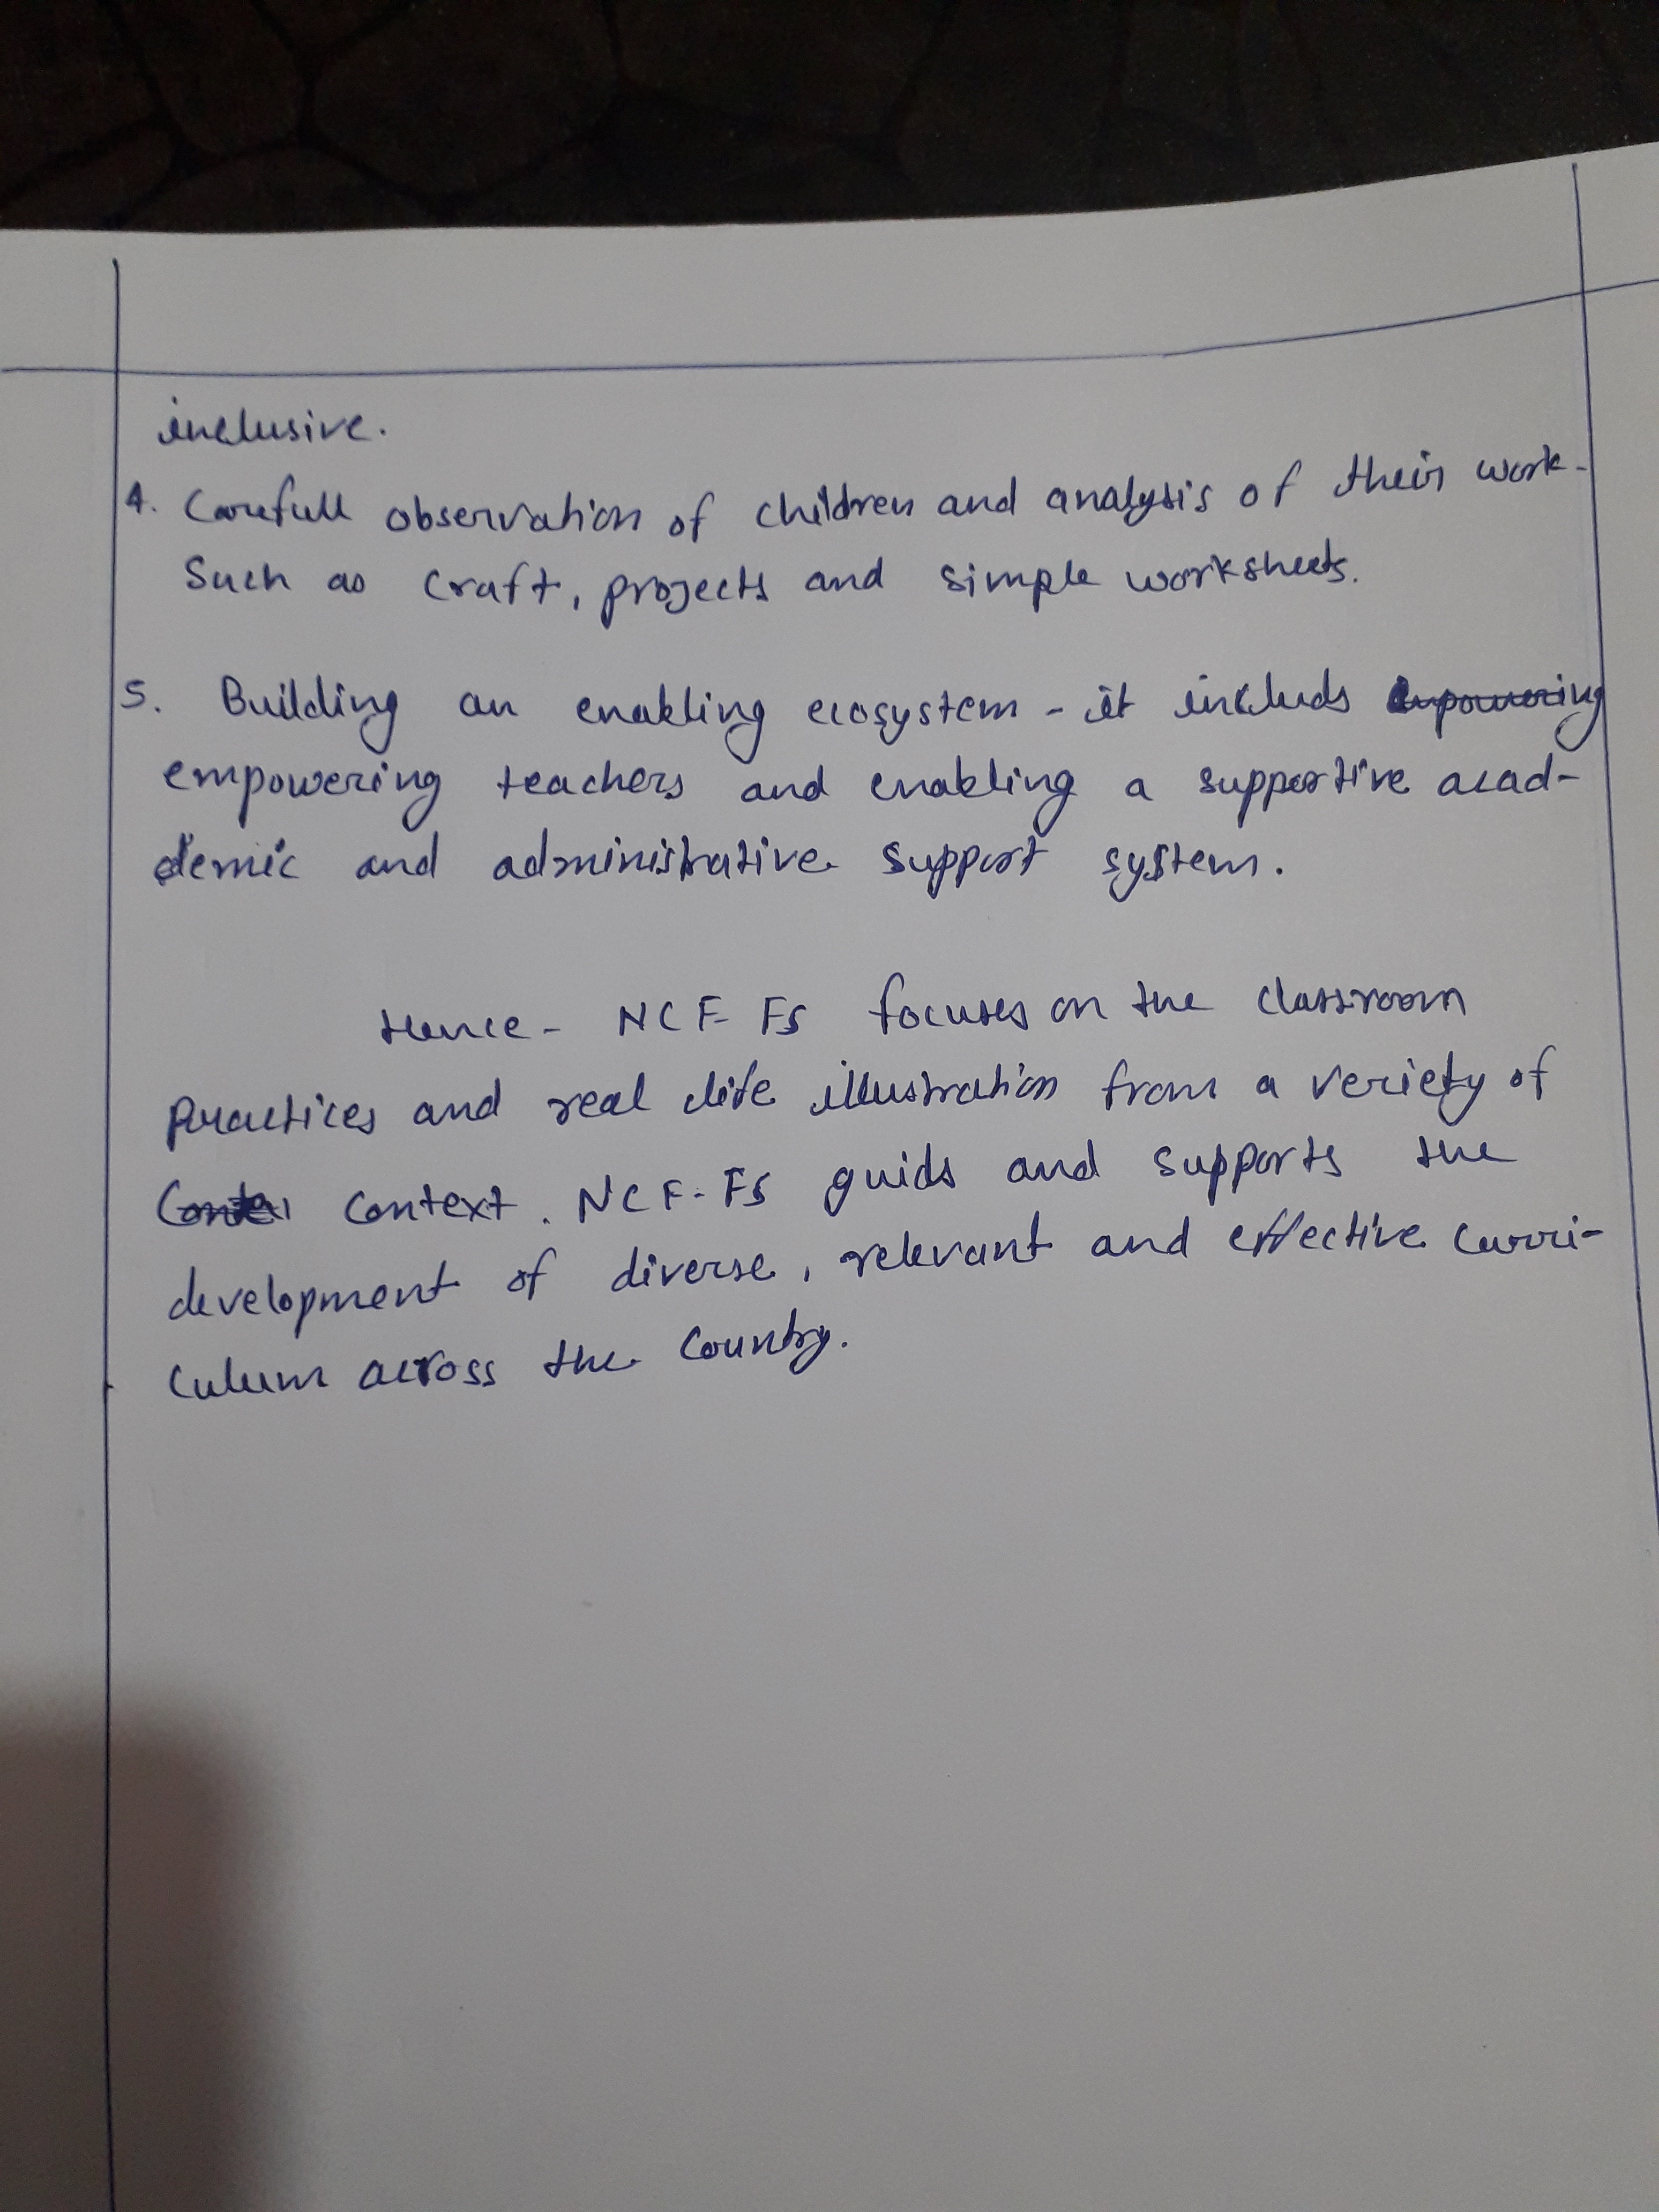 inclusive.
4. Carefull observation of children and analysis of their work-
Such as craft, projects and simple worksheets.
5. Building an enabling ecosystem - it includs empowering
empowering teachers and enabling a supportive acad-
demic and administrative support system.
Hence - NCF-FS focuses on the classroom
practices and real life illustration from a veriety of
context. NCF-FS guids and supports the
development of diverse, relevant and effective curri-
culum across the country.